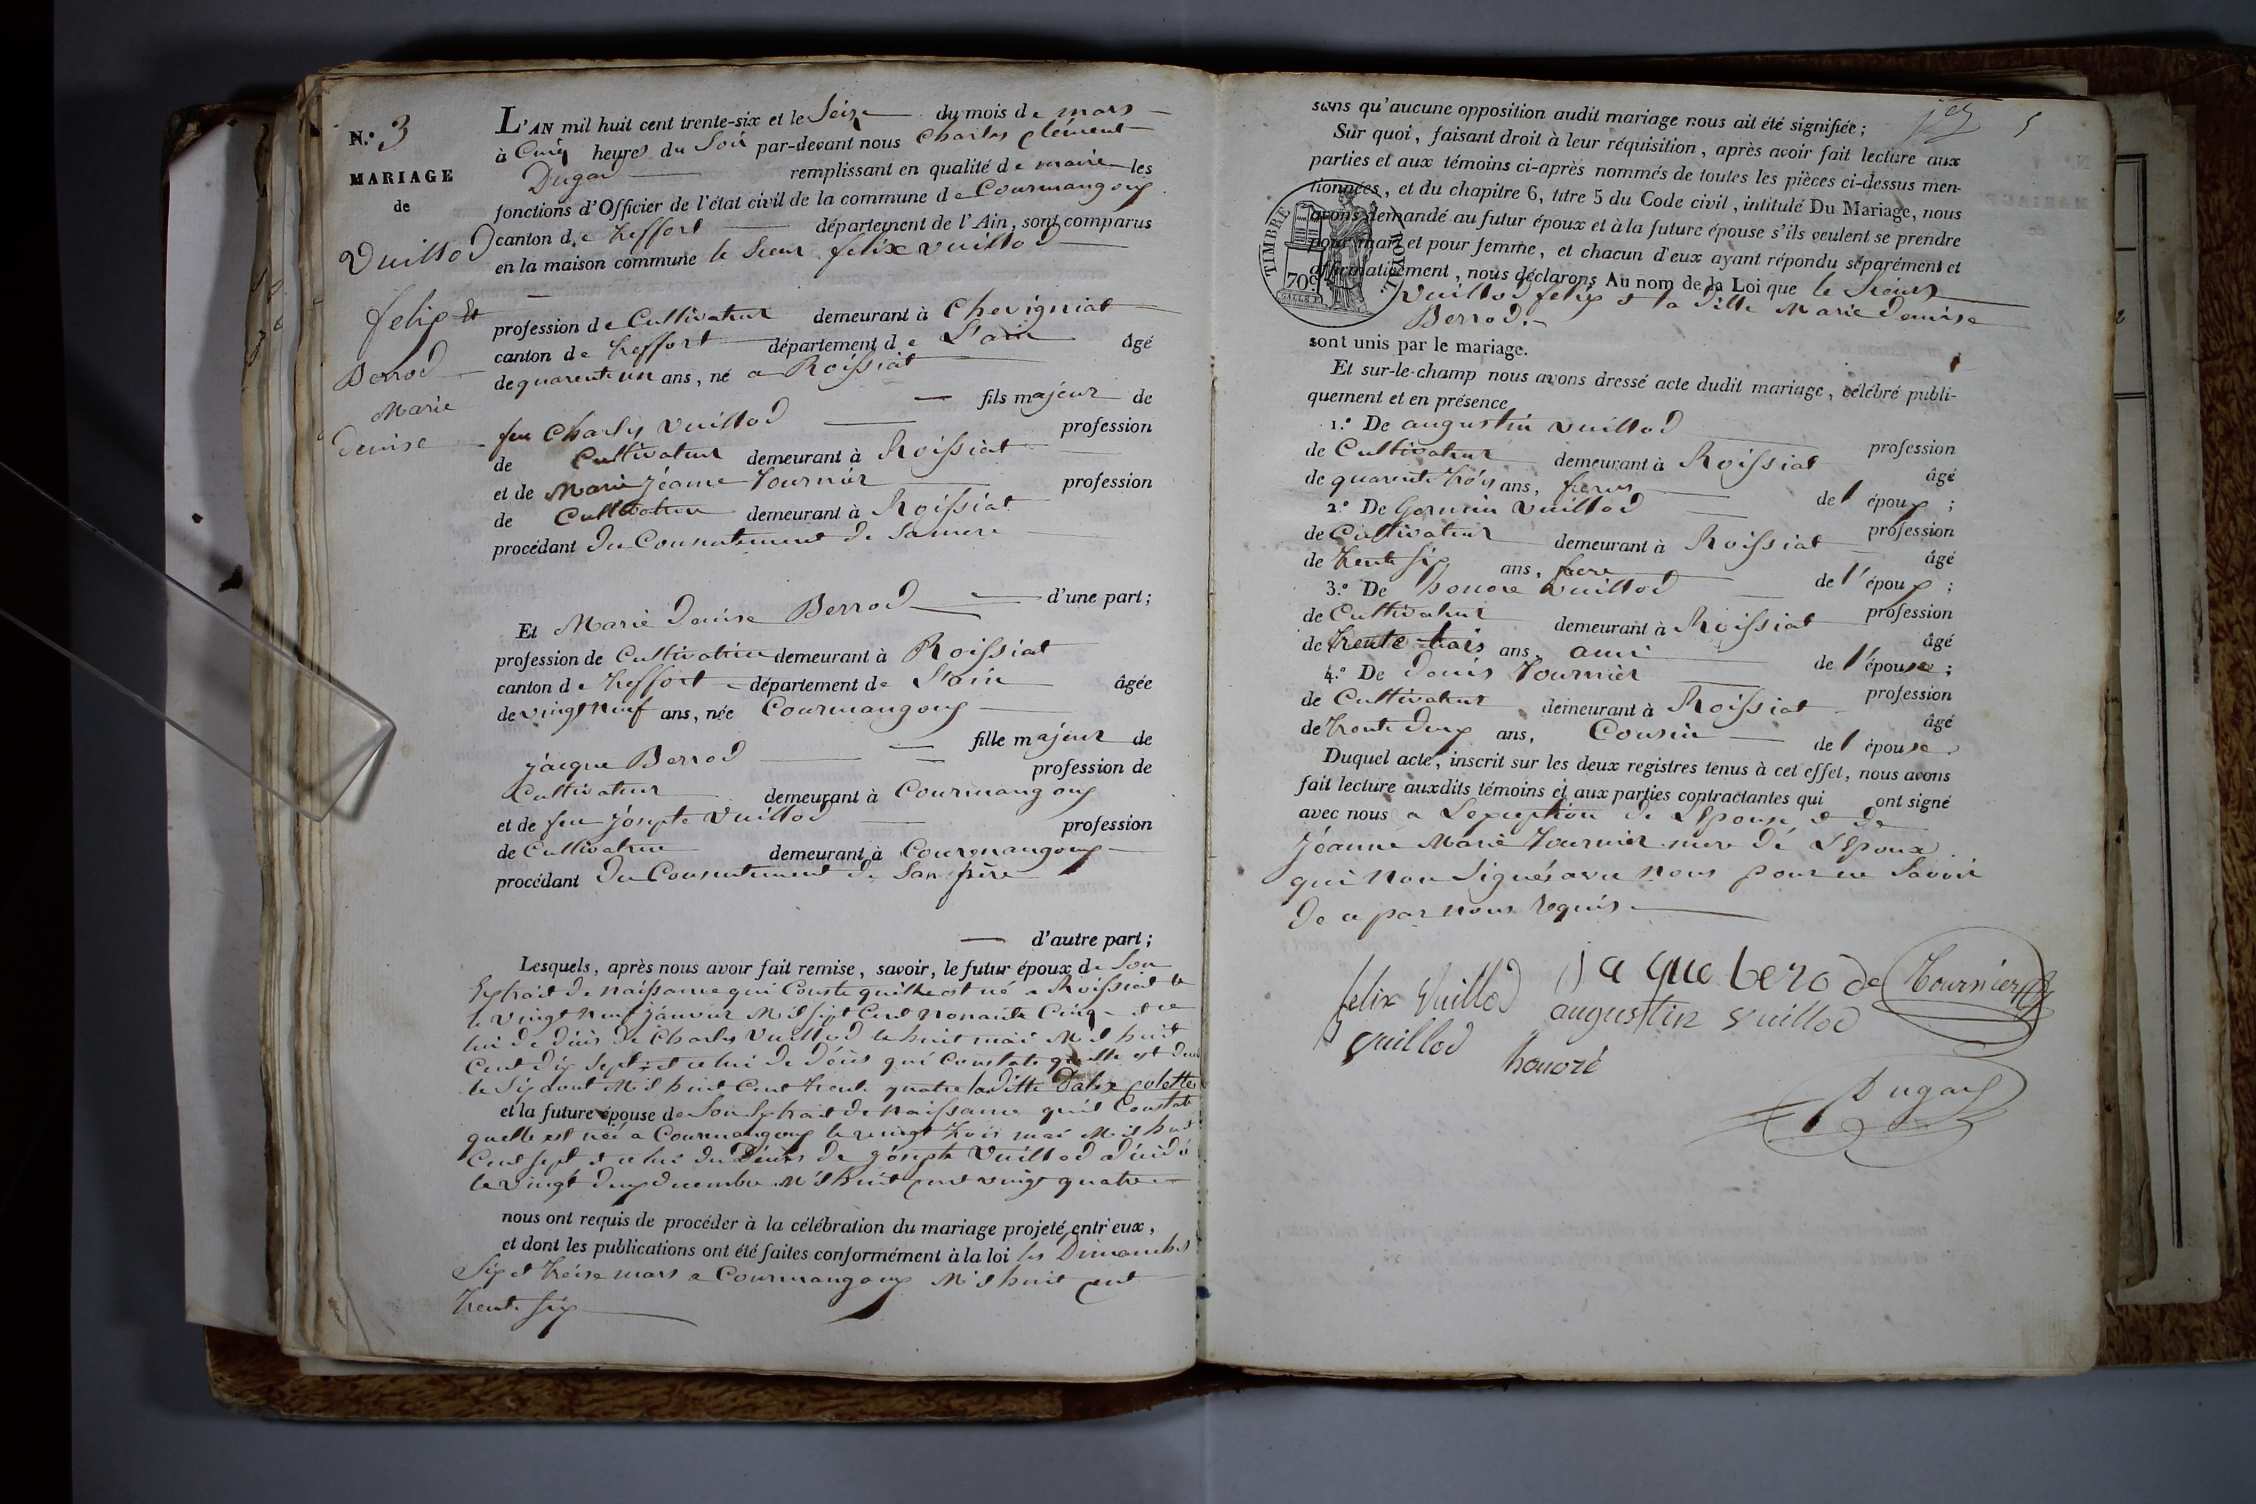 N.º 3
MARIAGE
de
Vuillod
felix et
Berrod
Marie
denise
L'AN mil huit cent trente-six et le Seize du mois de mars
à Cinq heures du Soir par-devant nous Charles Clément
Dugad remplissant en qualité de maire les
fonctions d'Officier de l'état civil de la commune de Courmangoux
canton de treffort département de l'Ain, sont comparus
en la maison commune le Sieur felix vuillod
profession de Cultivateur demeurant à Chevigniat
canton de treffort département de L'ain âgé
de quarente un ans, né a Roissiat
fils majeur de
feu Charles Vuillod profession
de Cultivateur demeurant à Roissiat
et de Marie Jéanne Tournier profession
de Cultivatrice demeurant à Roissiat
procédant du Consentement de Samere
d'une part;
Et Marie denise Berrod
profession de Cultivatrice demeurant à Roissiat
canton de treffort département de L'ain âgée
de vingt neuf ans, née Courmangoux
fille majeur de
jácque Berrod profession de
Cultivateur demeurant à Courmangoux
et de feu jósepte Vuillod profession
de Cultivatrice demeurant à Courmangoux
procédant du Consentement de San père
d'autre part;
Lesquels, après nous avoir fait remise, savoir, le futur époux de Son
Extrait de naissance qui Conste quille est né a Roissiat le
le vingt neuf jánvier Mil sept Cent nonante Cinq et ce
lui de déces de Charles Vuillod le huit mai Mil huit
Cent dix sept et celui de décés qui Constate quelle est
le Six aout Mil huit Cent trente quatre laditte Colette
et la future épouse de Son Extrait de naissance quil Constate
quelle est née a Courmangoux le vingt trois mai Mil huit
Cent sept et celui du Décès de jósepte Vuillod décédé
le vingt deux decembre Mil huit cent vingt quatre
nous ont requis de procéder à la célébration du mariage projeté entr'eux,
et dont les publications ont été faites conformément à la loi les Dimanches
Six et treise mars a Courmangoux Mil huit cent
trente six
5
sans qu'aucune opposition audit mariage nous ait été signifiée;
Sur quoi, faisant droit à leur réquisition, après avoir fait lecture aux
parties et aux témoins ci-après nommés de toutes les pièces ci-dessus men-
tionnées, et du chapitre 6, titre 5 du Code civil, intitulé Du Mariage, nous
avons demandé au futur époux et à la future épouse s'ils veulent se prendre
pour mari et pour femme, et chacun d'eux ayant répondu séparément et
affirmativement, nous déclarons Au nom de la Loi que le Sieur
Vuillod felix et la ditte Marie denise
Berrod.
TIMBRE ROYAL
70 c
sont unis par le mariage.
Et sur-le-champ nous avons dressé acte dudit mariage, célébré publi-
quement et en présence
1.º De augustin vuillod profession
de Cultivateur demeurant à Roissiat âgé
de quarente trois ans, frere de l'époux ;
2.º De Germain Vuillod profession
de Cultivateur demeurant à Roissiat âgé
de trente Six ans, frere de l'époux ;
3.º De honore Vuillod profession
de Cultivateur demeurant à Roissiat âgé
de trente trois ans, ami de l'épouse ;
4.º De denis Tournier profession
de Cultivateur demeurant à Roissiat âgé
de trente deux ans, Cousin de l'épouse
Duquel acte, inscrit sur les deux registres tenus à cet effet, nous avons
fait lecture auxdits témoins et aux parties contractantes qui ont signé
avec nous a L'exeption de L'Epouse et de
Jéanne Marie Tournier mere dé L'Epoux
qui Non Signés avec Nous pour ne Savoir
de ce par nous requis
felix Vuillod jaque bero de Tournier
augustin vuillod
vuillod honoré
Dugad